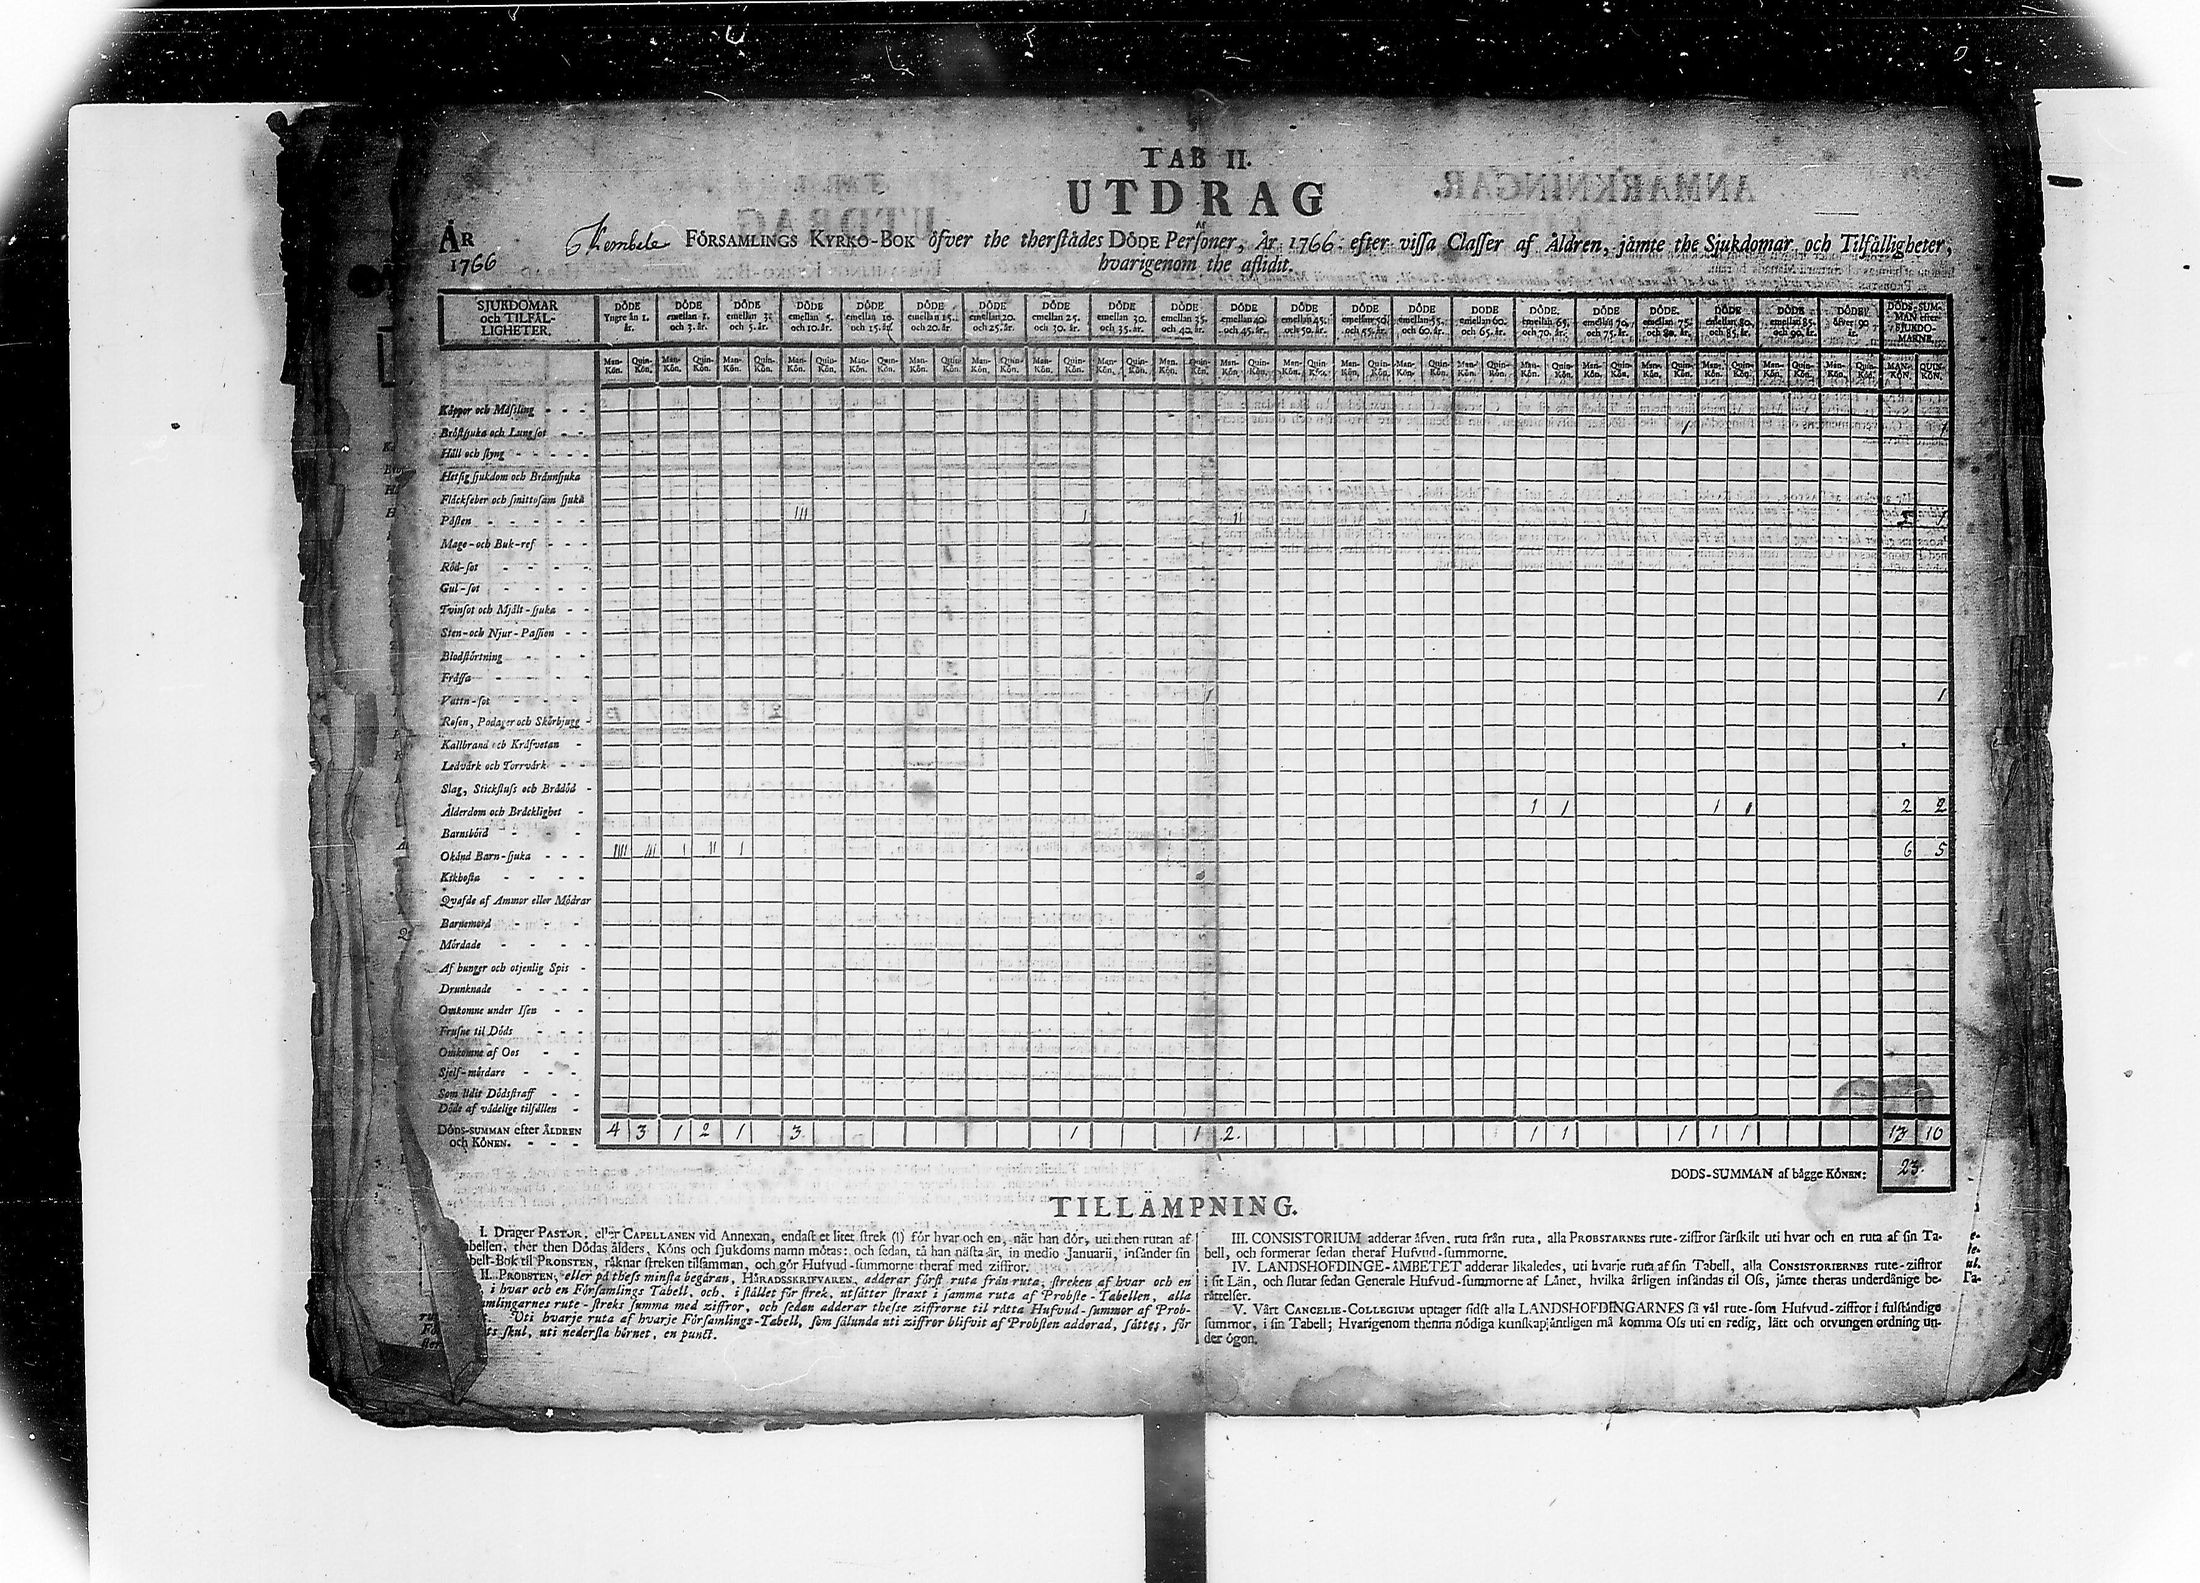 TAB II.
UTDRAG
AF
ÅR
1766
Kembele FÖRSAMLINGS KYRKO-BOK öfver the therstädes DÖDE Personer, År 1766. efter vissa Classer af Åldren, jämte the Sjukdomar och Tilfälligheter,
hvarigenom the aflidit.
SJUKDOMAR och TILFÄL-LIGHETER.
DÖDE Yngre än 1. år.
DÖDE emellan 1. och 3. år.
DÖDE emellan 3. och 5. år.
DÖDE emellan 5. och 10. år.
DÖDE emellan 10. och 15. år.
DÖDE emellan 15. och 20. år.
DÖDE emellan 20. och 25. år.
DÖDE emellan 25. och 30. år.
DÖDE emellan 30. och 35. år.
DÖDE emellan 35. och 40. år.
DÖDE emellan 40. och 45. år.
DÖDE emellan 45. och 50. år.
DÖDE emellan 50. och 55. år.
DÖDE emellan 55. och 60. år.
DÖDE emellan 60. och 65. år.
DÖDE. emellan 65. och 70. år.
DÖDE emellan 70. och 75. år.
DÖDE. emellan 75. och 80. år.
DÖDE emellan 80. och 85. år.
DÖDE emellan 85. och 90. år.
DÖDE öfver 90 år.
DÖDS-SUM-MAN efter SJUKDO-MARNE.
Man-Kön. Quin-Kön. Man-Kön. Quin-Kön. Man-Kön. Quin-Kön. Man-Kön. Quin-Kön. Man-Kön. Quin-Kön. Man-Kön. Quin-Kön. Man-Kön. Quin-Kön. Man-Kön. Quin-Kön. Man-Kön. Quin-Kön. Man-Kön. Quin-Kön. Man-Kön. Quin-Kön. Man-Kön. Quin-Kön. Man-Kön. Quin-Kön. Man-Kön. Quin-Kön. Man-Kön. Quin-Kön. Man-Kön. Quin-Kön. Man-Kön. Quin-Kön. Man-Kön. Quin-Kön. Man-Kön. Quin-Kön. Man-Kön. Quin-Kön. Man-Kön. Quin-Kön. MAN-KÖN. QUIN-KÖN.
Koppor och Mäsling - - -
Bröstsjuka och Lungsot - - 1 1
Håll och styng - - - -
Hetsig sjukdom och Brännsjuka
Fläckfeber och smittosam sjuka
Påsten - - - - - III 1 II 5 1
Mage- och Buk-ref - - -
Röd-sot - - - -
Gul-sot - - - -
Tvinsot och Mjält-sjuka - -
Sten- och Njur-Passion - -
Blodstörtning - - -
Frässa - - - - -
Vattn-sot - - - - 1 1
Rosen, Podager och Skörbjugg -
Kallbrand och Kräfvetan -
Ledvärk och Torrvärk - -
Slag, Stickfluss och Brådöd -
Ålderdom och Bräcklighet - 1 1 1 1 2 2
Barnsbörd - - - -
Okänd Barn-sjuka - - - IIII III 1 II 1 6 5
Kikhosta - - - -
Qvafde af Ammor eller Mödrar
Barnemord - - - -
Mördade - - - -
Af hunger och otjenlig Spis -
Drunknade - - - -
Omkomne under Isen - -
Frusne til Döds - - -
Omkomne af Oos - -
Sjelf-mördare - - -
Som lidit Dödsstraff - -
Döde af vådelige tilfällen -
DÖDS-SUMMAN efter ÅLDREN och KÖNEN. - - - 4 3 1 2 1 3 1 1 2. 1 1 1 1 1 13 10
DÖDS-SUMMAN af bägge KÖNEN: 23.
TILLÄMPNING.
I. Drager PASTOR, eller CAPELLANEN vid Annexan, endast et litet strek (1) för hvar och en, när han dör, uti then rutan af
abellen, ther then Dödas ålders, Köns och sjukdoms namn mötas: och sedan, tå han nästa år, in medio Januarii, insänder sin
bell-Bok til PROBSTEN, räknar streken tilsamman, och gör Hufvud-summorne theraf med ziffror.
II. PROBSTEN, eller på thess minsta begäran, HÄRADSSKRIFVAREN, adderar först ruta från ruta, streken af hvar och en
i hvar och en Församlings Tabell, och, i stället för strek, utsätter straxt i samma ruta af Probste-Tabellen, alla
amlingarnes rute-streks summa med ziffror, och sedan adderar thesse ziffrorne til rätta Hufvud-summor af Prob-
Uti hvarje ruta af hvarje Församlings-Tabell, som sålunda uti ziffror blifvit af Probsten adderad, sättes, för
ts skul, uti nedersta hörnet, en punct.
III. CONSISTORIUM adderar äfven, ruta från ruta, alla PROBSTARNES rute-ziffror särskilt uti hvar och en ruta af sin Ta-
bell, och formerar sedan theraf Hufvud-summorne.
IV. LANDSHÖFDINGE-ÄMBETET adderar likaledes, uti hvarje ruta af sin Tabell, alla CONSISTORIERNES rute-ziffror
i sit Län, och slutar sedan Generale Hufvud-summorne af Länet, hvilka årligen insändas til Oss, jämte theras underdånige be-
rättelser.
V. Vårt CANCELIE-COLLEGIUM uptager sidst alla LANDSHÖFDINGARNES så väl rute- som Hufvud-ziffror i fulständige
summor, i sin Tabell; Hvarigenom thenna nödiga kunskap jäntligen må komma Oss uti en redig, lätt och otvungen ordning un-
der ögon.